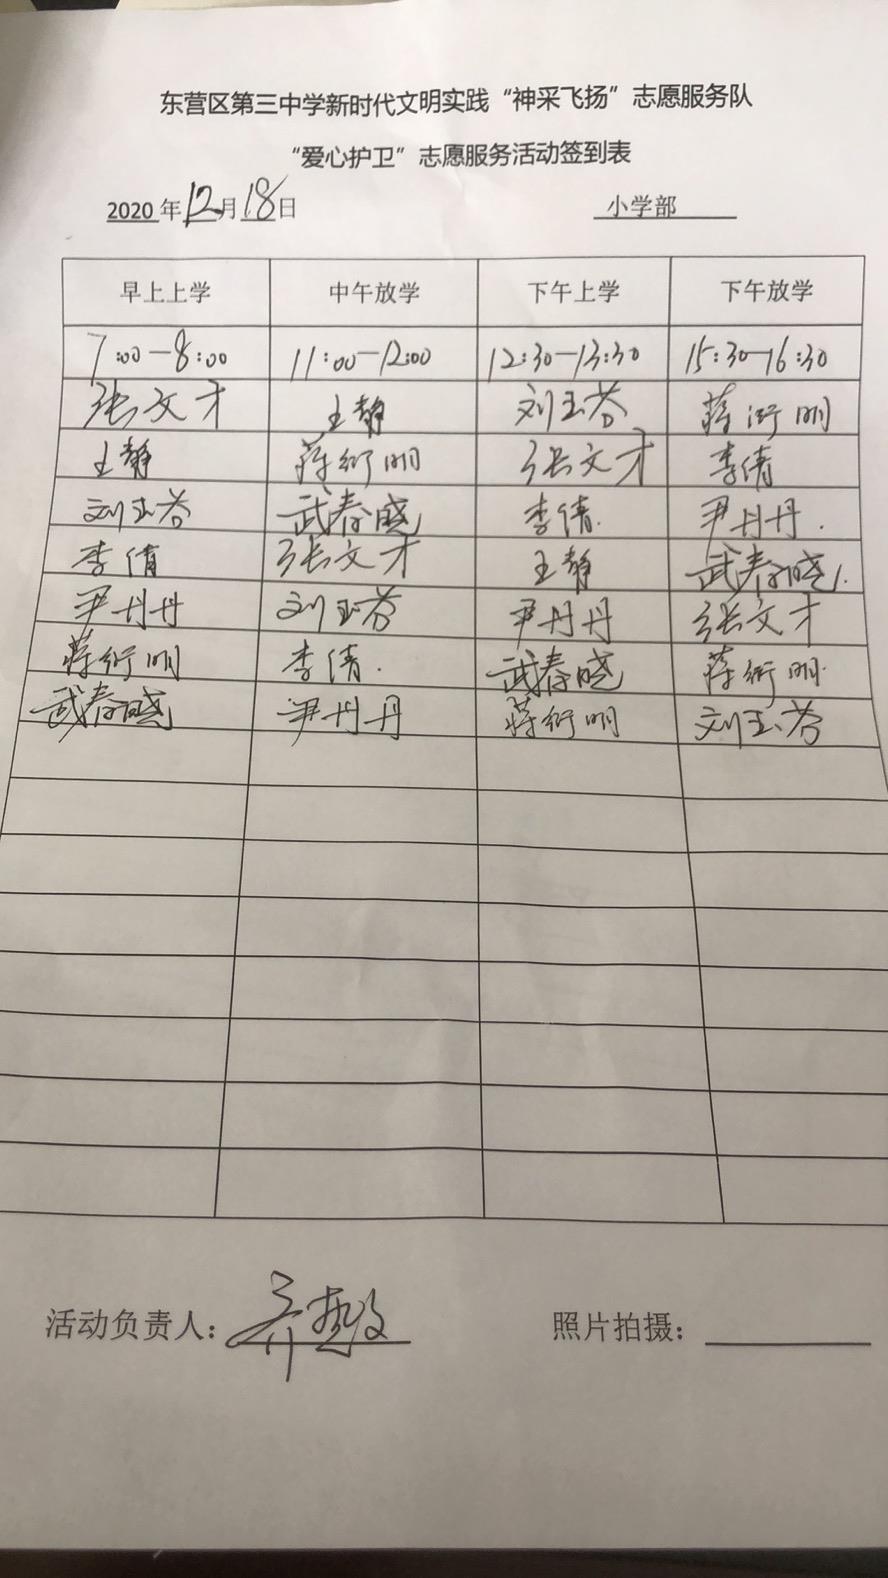 东营区第三中学新时代文明实践“神采飞扬”志愿服务队
“爱心护卫”志愿服务活动签到表
2020年12月18日 小学部
早上上学 中午放学 下午上学 下午放学
7:00-8:00 11:00-12:00 12:30-13:30 15:30-16:30
张文才 王静 刘玉芬 蒋衍明
王静 蒋衍明 张文才 李倩
刘玉芬 武春晓 李倩. 尹丹丹.
李倩 张文才 王静 武春晓.
尹丹丹 刘玉芬 尹丹丹 张文才
蒋衍明 李倩. 武春晓 蒋衍明.
武春晓 尹丹丹 蒋衍明 刘玉芬
活动负责人: 照片拍摄: